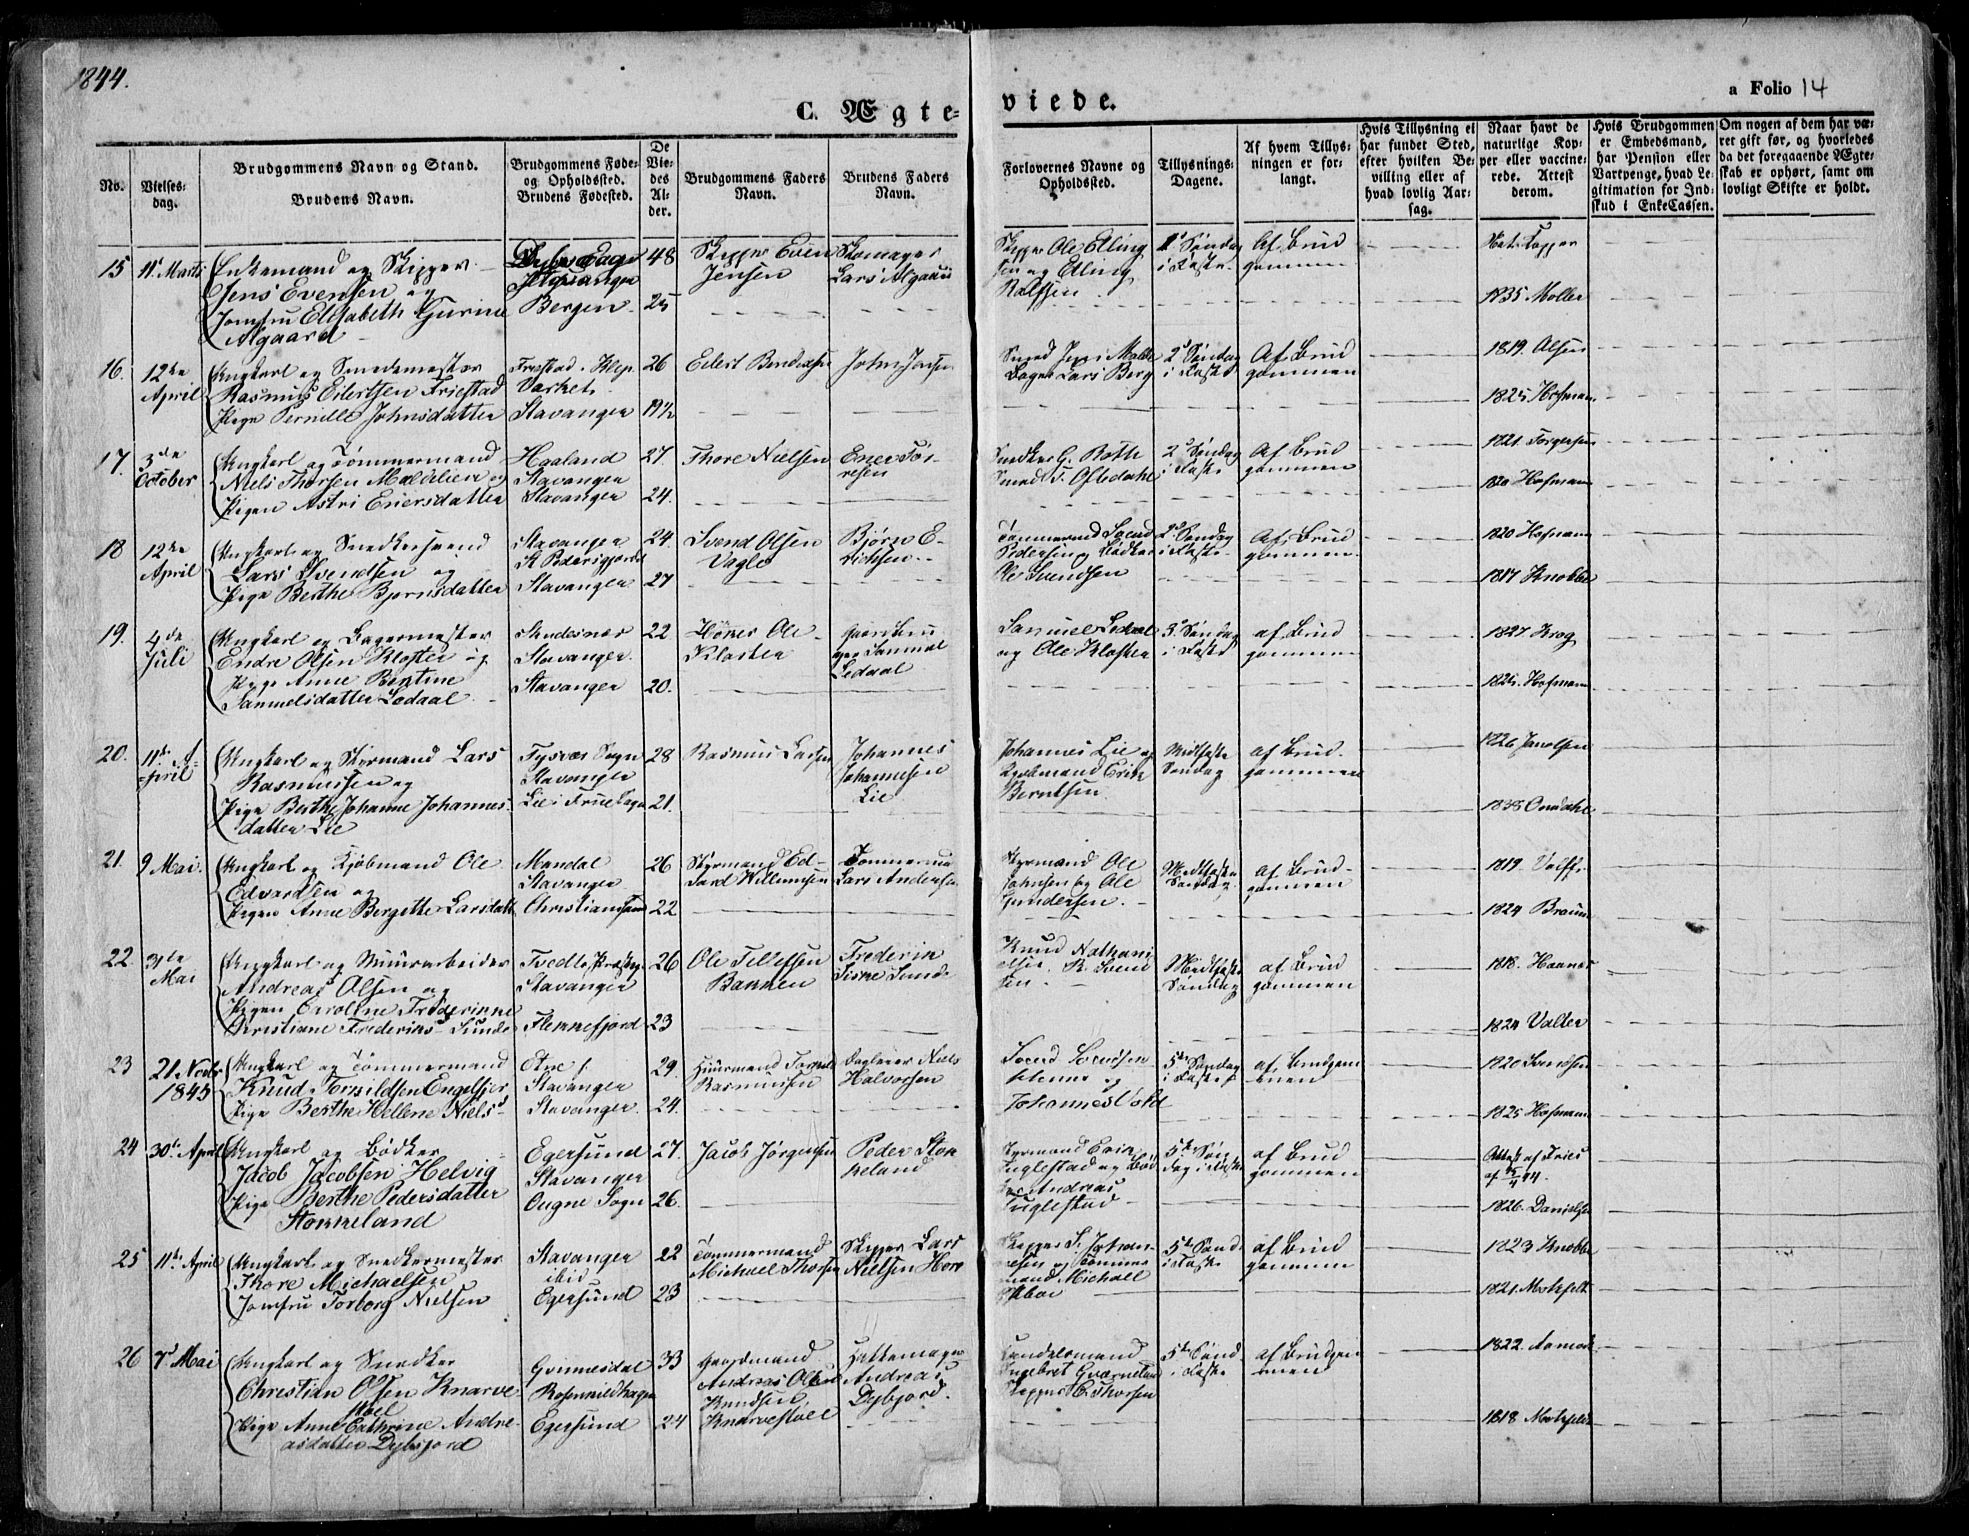 1844.
C. Ægte=
viede.
a Folio 14
No.
Vielses-
dag.
Brudgommens Navn og Stand.
Brudens Navn.
Brudgommens Føde-
og Opholdssted.
Brudens Fødested.
De
Vie-
des
Al-
der.
Brudgommens Faders
Navn.
Brudens Faders
Navn.
Forlovernes Navne og
Opholdssted.
Tillysnings-
Dagene.
Af hvem Tillys-
ningen er for-
langt.
Hvis Tillysning ei
har fundet Sted,
efter hvilken Be-
villing eller af
hvad lovlig Aar-
sag.
Naar havt de
naturlige Kop-
per eller vaccine-
rede. Attest
derom.
Hvis Brudgommen
er Embedsmand,
har Pension eller
Vartpenge, hvad Le-
gitimation for Ind-
skud i EnkeCassen.
Om nogen af dem har væ-
ret gift før, og hvorledes
da det foregaaende Ægte-
skab er ophørt, samt om
lovligt Skifte er holdt.
15
11' Marts
Enkemand og Skipper
Jens Evensen og
Jomfru Elisabeth Gurine
Algaard
Bergen
48
25
Skipper Even
Jensen
Skomager
Lars Algaard
Skipper Ole Elling
sen og Elling
1' Søndag
i Faste
Af Brud
gommen
Nat. Kopper
1835 Møller
16.
12te
April
Ungkarl og Smedemester
Rasmus Eilertsen Friestad
Pige Pernille Johnsdatter
Friestad i Klep
Stavanger
26
19½
Eilert Bendixsen
John Jansen
Smed Jens Malde
Bager Lars Berg
2' Søndag
i Faste
Af Brud
gommen
1819. Olsen
1825 Hofman
17.
3de
October
Ungkarl og Tømmermand
Niels Thorsen Maldelien og
Pigen Astri Eriersdatter
Haaland
Stavanger
Stavanger
27.
24.
Thore Nielsen
2' Søndag
i Faste
Af Brud
gommen
1821. Torgersen
1820 Hofmann
18
12te
April
Ungkarl og Snedkersvend
Lars Svendsen og
Pige Berthe Bjørnsdatter
Stavanger
Stavanger
24.
27
Svend Olsen
Vagle
Bjørn E-
richsen
Tømmermand Svend
Pedersen og
Ole Svendsen
2' Søndag
i Faste
Af Brud
gommen
1820 Hofmann
1817 Knobbe
19.
4de
Juli
Ungkarl og Bagermester
Endre Olsen Kloster og
Pige Anne Bertine
Samuelsdatter Ledaal
Skudesnes
Stavanger
Stavanger
22
20.
Høker Ole
Kloster
Samuel
Ledaal
Samuel Ledaal
og Ole Kloster
3' Søndag
i Faste
af Brud
gommen
1827 Krog
1825. Hofmann
20.
11te A-
pril
Ungkarl og Styrmand Lars
Rasmussen og
Pige Berthe Johanne Johannes-
datter Lie
Tysvær Sogn
Stavanger
Lie i Frue Sogn
28
21.
Rasmus Larsen
Johannes
Johannesen
Lie
Johannes Lie og
Kjøbmand Erik
Berntsen
Midtfaste
Søndag
af Brud-
gommen
1826 Janolsen
1838 Omdahl
21.
9 Mai.
Ungkarl og Kjøbmand Ole
Edvardsen og
Pigen Anne Bergitte Larsdatt
Mandal
Stavanger
Christianssand
26
22
Styrmand Ed-
vard Willumsen
Tømmerma
Lars Andersen
Styrmand Ole
Johnsen og Ole
Gundersen.
Midtfaste
Søndag
af Brud-
gommen
1819 Volff.
1824 Bruun
22.
31te
Mai
Ungkarl og Muurarbeider
Andreas Olsen og
Pigen Caroline Frederinne
Christiane Frederiks- Sunde
Stavanger
Flekkefjord
26
23
Ole Tellefsen
Bakken
Knud Nathani
elsen
Midtfaste
Søndag
af Brud
gommen
1818. Haanes
1824 Valter
23
21 Novbr
1845
Ungkarl og Tømmermand
Knud Torkildsen Engelsjer
Pige Berthe Hellene Niels'
Etne
Stavanger
Stavanger
29.
24.
Huusmand Torkild
Rasmussen
Dagleier Niels
Halvorsen
Svend Svendsen
og
Johannes Vold
5te Søndag
i Faste
af Brudgom
men
1820 Svendsen
1825 Hofmann
24
30te April
Ungkarl og Bødker
Jacob Jacobsen Helvig
Pige Berthe Pedersdatter
Stokkeland
Egersund
Stavanger
Ougne Sogn
27.
26.
Jacob Jørgensen
Peder Stok
keland
Styrmand Erik
Fuglestad og Bød
ker Andreas
Fuglestad
5te Søn
dag i Faste
af Brud
gommen
Attest af Fries
1826. Danielsen
25
11te April
Ungkarl og Snedkermester
Thore Michaelsen
Jomfru Torborg Nielsen
Stavanger
ibid
Egersund
22
23
Tømmermand
Michael Thorsen
Skipper Lars
Nielsen Hove
Skipper S. Johan-
nesen og Tømmer
mand Michael
5te Sønd.
i Faste
af Brud
gommen
1823 Knobbe
1821. Motzfelt
26
7' Mai
Ungkarl og Snedker
Christian Olsen Knarve-
støel
Pige Anne Cathrine Andre-
asdatter Dybfjord
Egersund
33
24
Gaardmand
Andreas Olsen
Knudsen
Knarvestøel
Hattemager
Andreas
Dybfjord.
Ingebret Qvarneland
Skipper C. Thorsen
5te Sønd
i Faste
af Brudgom
men
1822. Aamodt
1818 Motzfeldt